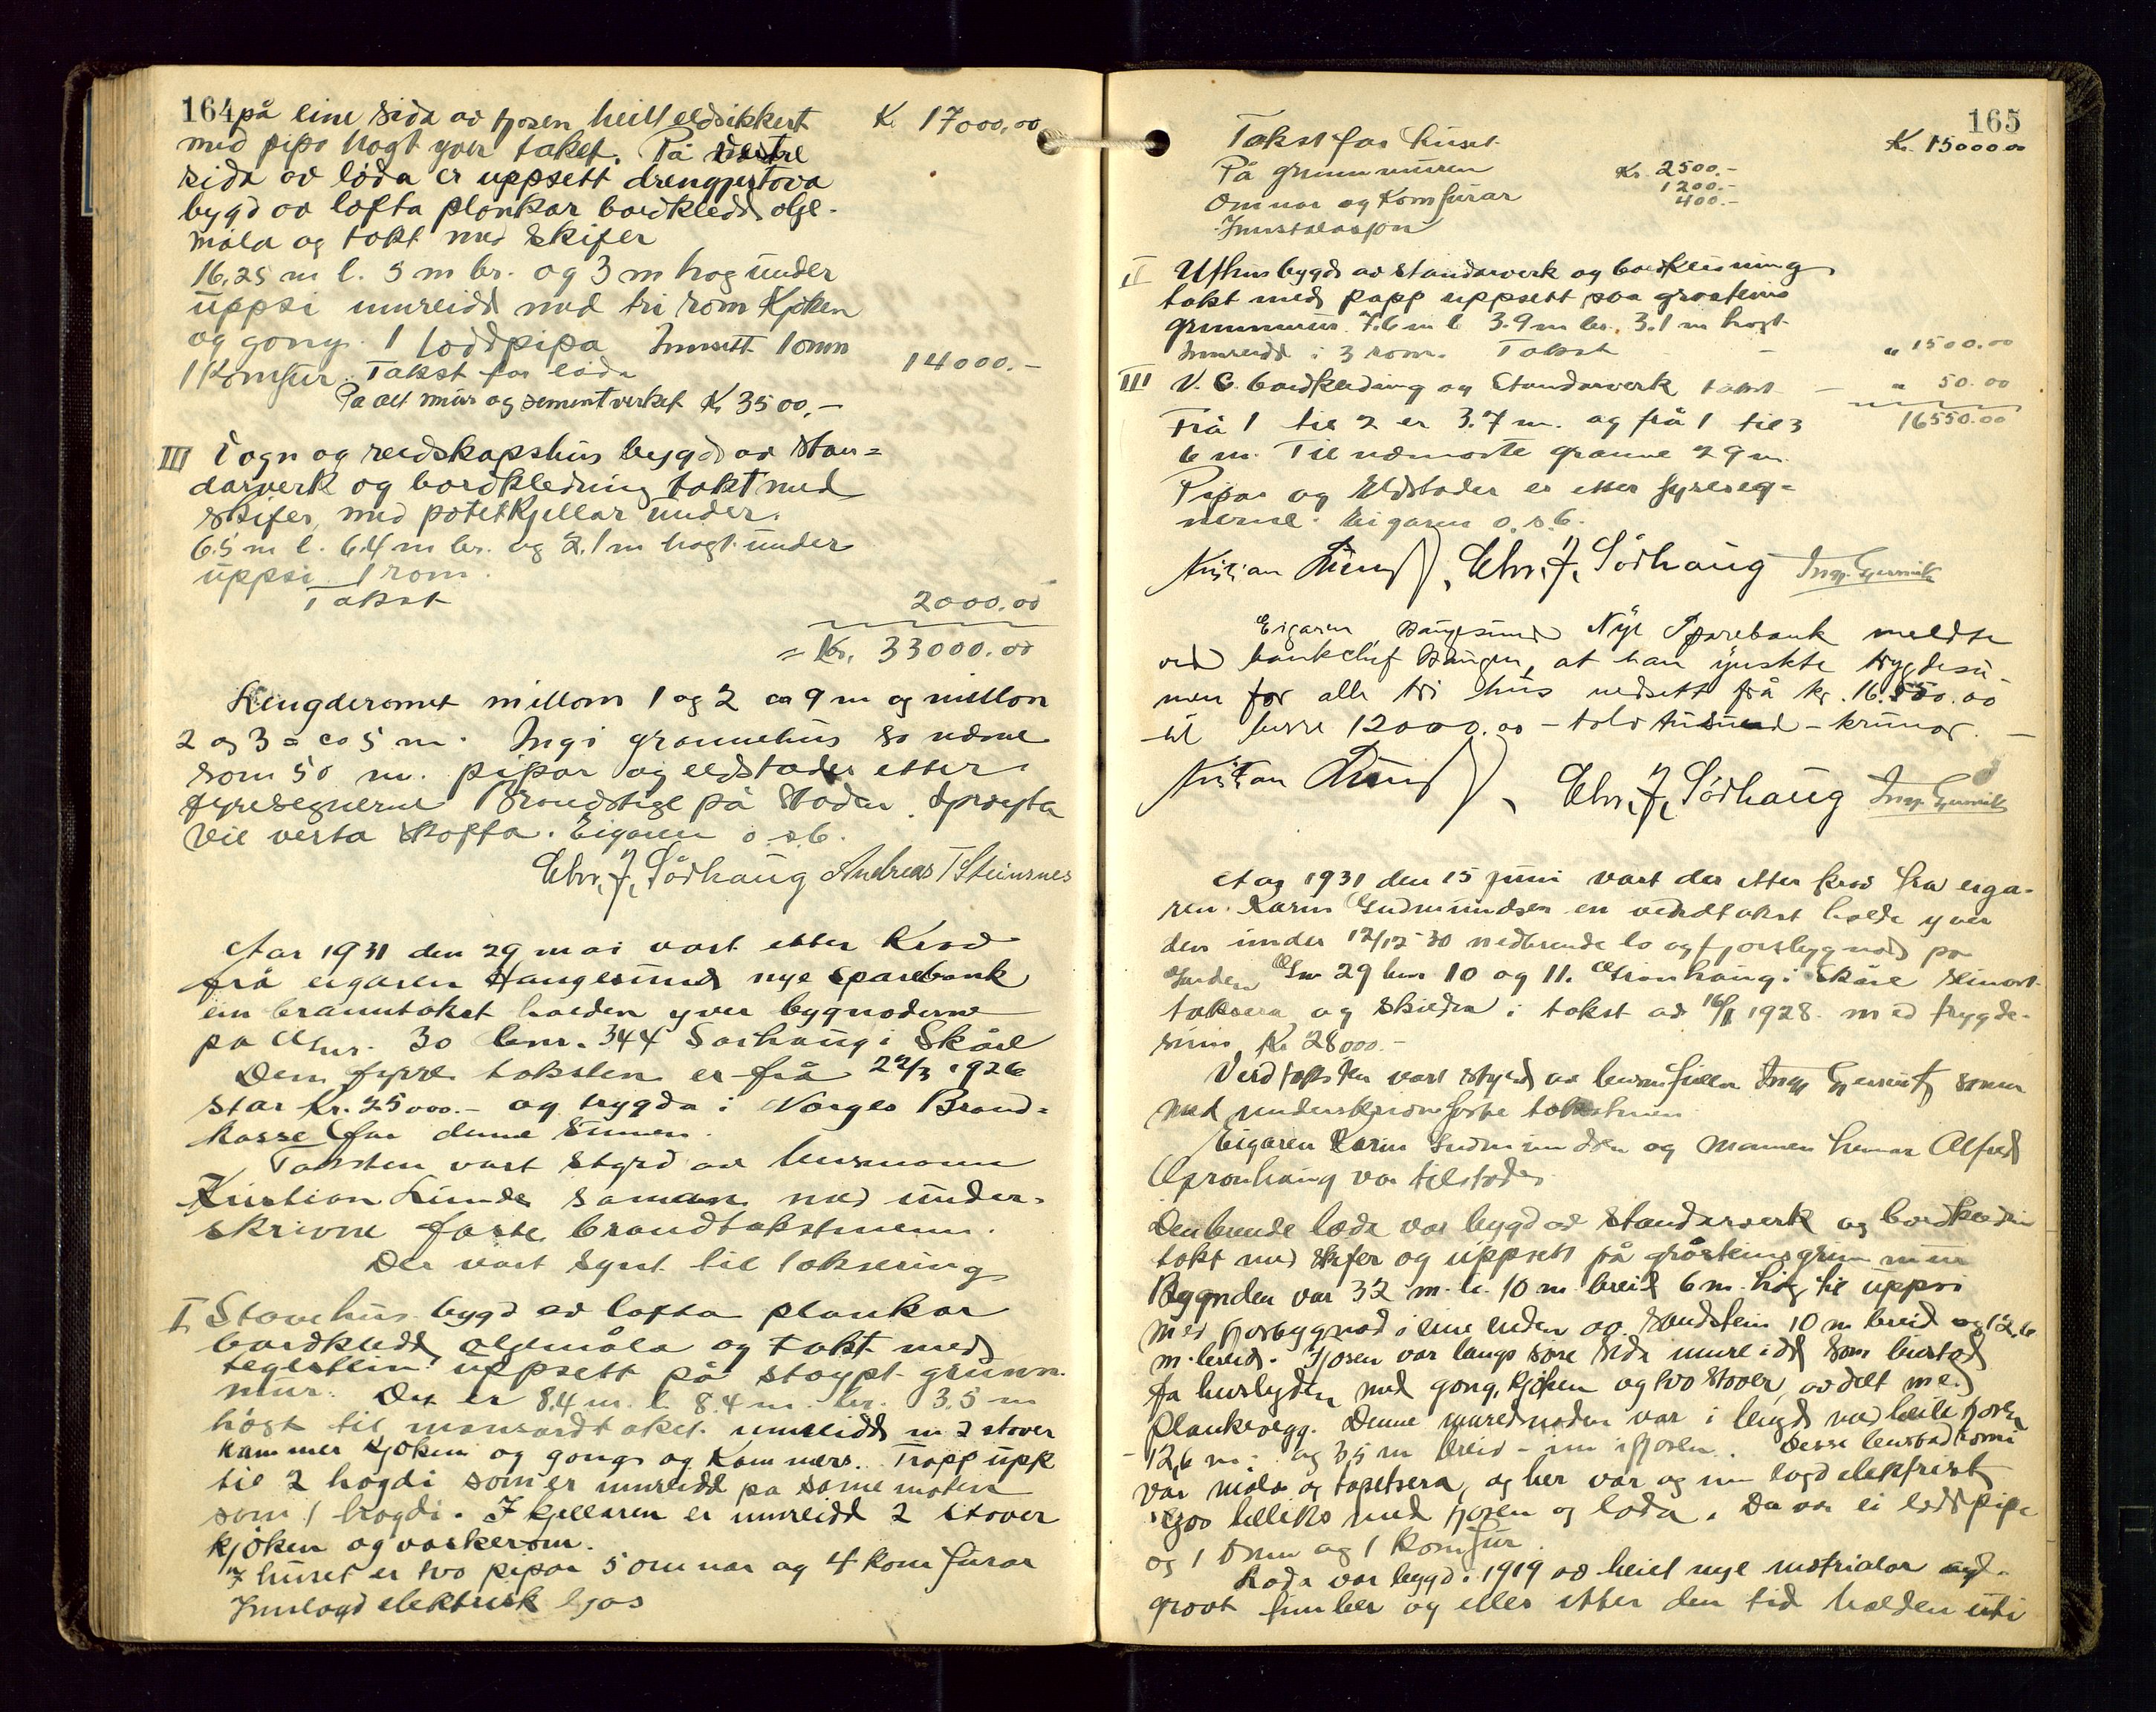 164 på eine sida av fjosen heilt eldsikkert Kr 17000,00
med pipo hogt yver taket. På vestre
sida av løda er uppsett drengjestova
bygd av lafta plankar bordkledd olje-
måla og tekt med skifer
16.25 m l. 5 m br. og 3 m høg under
uppsi innreidd med tri rom Kjøken
og gong. 1 loddpipa Innsett 1 omn
1 Komfur. Takst for løda 14000.-
På alt mur og sementverket Kr 3500,-
III Vogn og reidskapshus bygd av Stan=
darverk og bordkledning takt med
Skifer, med potetkjellar under.
6.5 m l. 6.4 m br. og 2.1 m høgt under
uppsi. 1 rom.
Takst 2000.00
= Kr. 33000.00
Lengderomet millom 1 og 2 ca 9 m og millom
2 og 3 = ca 5 m. Ingi grannehus so nærne
som 50 m. pipor og eldstader etter
fyresegnerne Brandstige på Staden. Sprøyta
vil verta skaffa. Eigaren o.s.b.
Chr. J. Sørhaug Andreas T Steinsnes
Aar 1931 den 29 mai vart etter Krav
frå eigaren Haugesund nye sparebank
ein branntakst halden yver bygnoderne
på Gnr. 30 bnr. 344 Sørhaug i Skåre
Den fyrre taksten er frå 22/3 1926
stor Kr. 25000.- og trygda i Norges Brand=
kasse for denne Summen.
Taksten vart styrd av lensmann
Kristian Lunde saman med under-
skrivne faste brandtakstmenn.
Der vart synt til taksering
I Stovehus bygd av lafta plankar
bordkledd oljemåla og takt med
teglstein uppsett på støypt grunn-
mur. Det er 8.4 m. l. 8.4 m. br. 3.5 m
høgt til mansardtaket. innreidd m 2 stover
kammer kjøken og gong og Kammers. Trapp upp
til 2 høgdi som er innreidd på same måten
som 1 høgdi. I kjellaren er innreidd 2 stover
kjøken og vaskerom.
I huset er tvo pipor 5 omnar og 4 komfurar
Innlagd elektrisk ljos
165
Takst for huset Kr. 15000.00
På grunnmuren Kr. 2500.-
Omnar og Komfurar 1200.-
Innstalasjon 400.-
II Uthus bygd av standarverk og bordkledning
takt med papp uppsett på gråsteins
grunnmur. 7.6 m l 3.9 m br. 3.1 m høgt
Innreidd i 3 rom. Takst - " 1500.00
III V. C. bordkledning og Standarverk takst - " 50.00
Frå 1 til 2 er 3.7 m. og frå 1 til 3 16550.00
6 m. Til næmaste granne 29 m.
Pipor og Eldstader er etter fyreseg=
nerne. Eigaren o.s.b.
Kristian Lunde, Chr. J. Sørhaug
Eigaren Haugesund Nye Sparebank meldte
ved bankchef Haugen, at han ynskte trygdesu-
men for alle tri hus nedsett frå kr. 16.550.00
til berre 12000.00 - tolv tusund - krunor. -
Kristian Lunde, Chr. J. Sørhaug
Aar 1931 den 15 juni vart der etter krav fra eiga-
ren. Karin Gudmundsen en verdtakst halde yver
den under 12/12-30 nedbrende lo og fjosbygnad på
Garden Gnr 29 bnr 10 og 11. Grønhaug i Skåre seinast
taksera og skildra i takst av 16/1 1928. med trygde-
sum Kr 28000.-
Verdtaksten vart styrd av lensm fullm som
med underskrivne faste takstmenn
Eigaren Karin Gudmundsen og mannen hennar Alfred
Grønhaug var tilstades
Den brende løda var bygd av Standarverk og bordkledn
takt med skifer og uppsett på gråsteinsgrunnmur
Bygnden var 32 m. l. 10 m. breid 6 m. høg til uppsi
med fjosbygnad i eine enden av sandstein 10 m breid og 12,6
m. breid. Fjosen var langs søre sida innreidd som bustad
fo huslyden, med gong, kjøken og tvo stover, avdelt med
plankevegg. Denne innreidnaden var i lengd med heile fjosen
- 12,6 m. og 3,5 m breid - inn i fjosen. Desse bustadromi
var måla og tapetsera, og her var og inn lagd elektrisk
ljos tilliks med fjosen og løda. Da var ei loddpipe
og 1 Omn og 1 Komfur.
Løda var bygd i 1919 av heilt nye matrialar
grovt timber og elles etter den tid halden uti